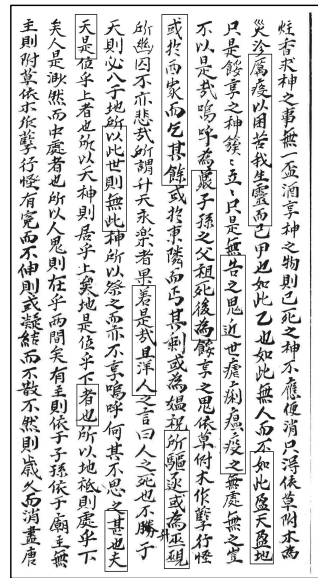 炷香求神之事無一盃酒享神之物則已死之神不應便消只淂依草附木為
災沴厲疫以困苦我生靈而已甲也如此乙也如此無人而不如此盈天盈地
只是餒享之神鎖〻立〻只是無告之鬼近世瘧上痢瘟疫之無處無之豈
不以是哉嗚呼為嚴子孫之父祖死後為餒享之鬼依草附木作孽行怪
或扵西家而乞其餘或扵東隣而丐其剩或為媼祝所驅逐或為巫覡
所幽囚不亦悲哉所謂升天永樂者果若是哉且洋人之言曰人之死也不勝升于
天則必入于地所以此世則無此神所以祭之而亦不享嗚呼何其不思之甚也天
天是位乎上者也所以天神則居乎上矣地是位乎下者也所以地祇則處乎下
矣人是渺然而中處者也所以人鬼則在乎兩間矣有主則依于子孫依于廟主無
主則附草依木作孽行怪有寃而不伸則或凝結而不散不然則歲久而消盡唐